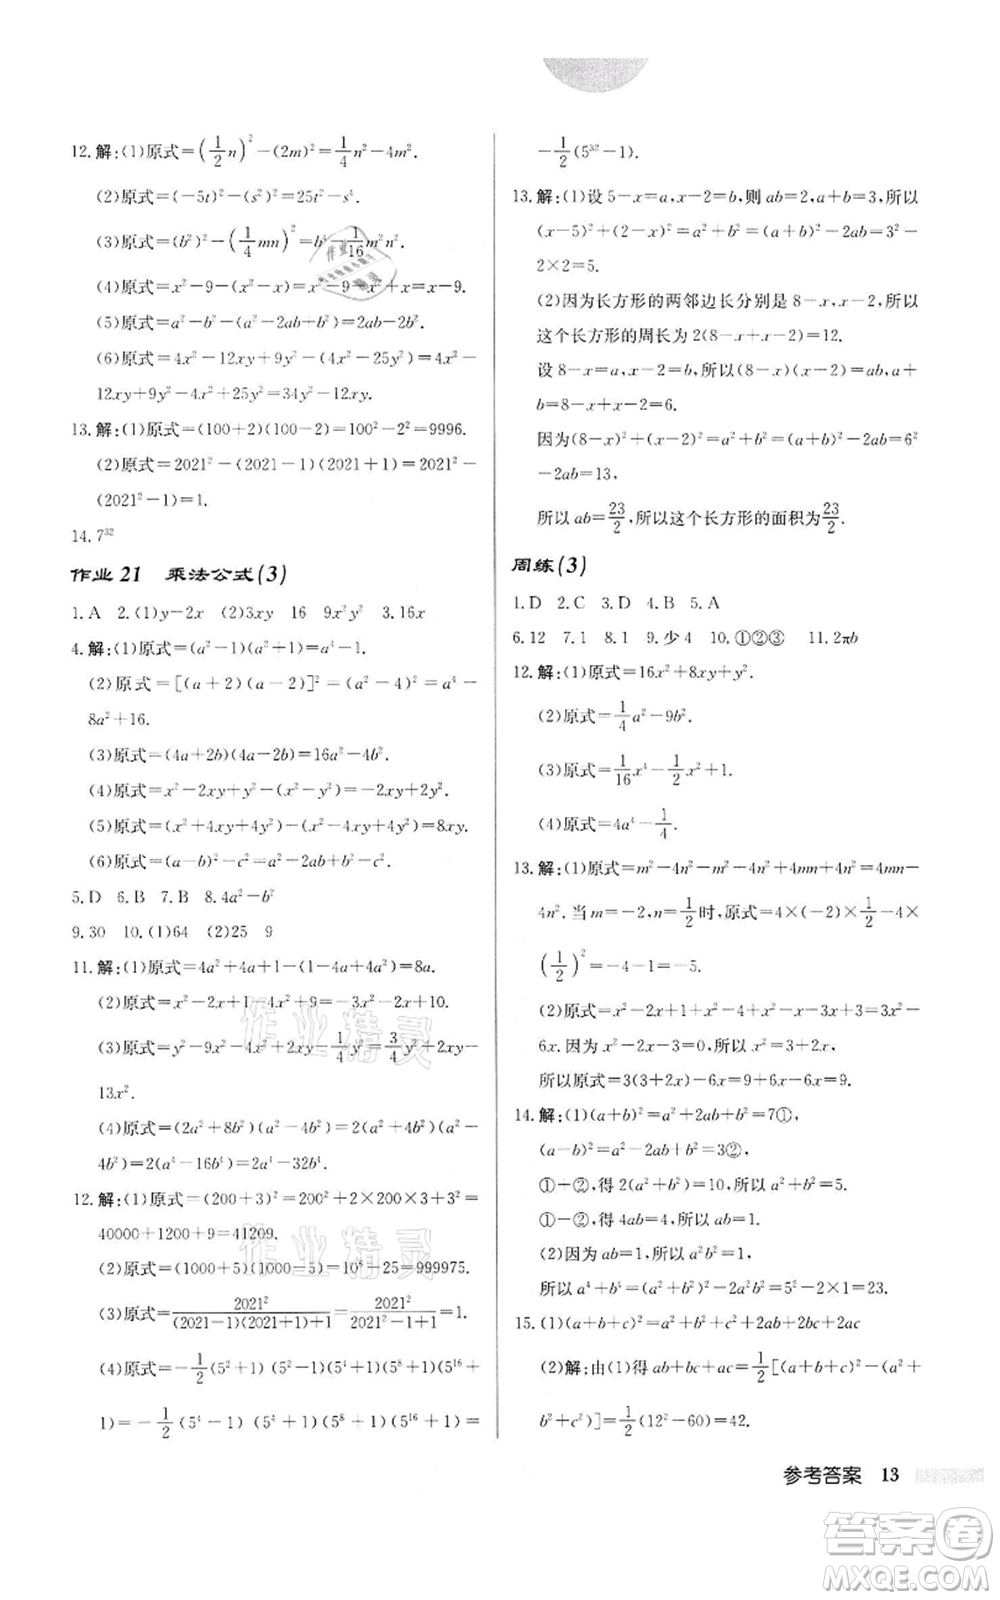 12. 解:(1)原式=(1/2 n)²-(2m)²=1/4 n²-4m².
(2)原式=(-5t)²-(s²)²=25t²-s⁴.
(3)原式=(b²)²-(1/4 mn)²=b⁴-1/16 m²n².
(4)原式=x²-9-(x²-x)=x²-9-x²+x=x-9.
(5)原式=a²-b²-(a²-2ab+b²)=2ab-2b².
(6)原式=4x²-12xy+9y²-(4x²-25y²)=4x²-
12xy+9y²-4x²+25y²=34y²-12xy.
13. 解:(1)原式=(100+2)(100-2)=100²-2²=9996.
(2)原式=2021²-(2021-1)(2021+1)=2021²-
(2021²-1)=1.
14. 7³²
作业 21 乘法公式(3)
1. A 2. (1)y-2x (2)3xy 16 9x²y² 3. 16x
4. 解:(1)原式=(a²-1)(a²+1)=a⁴-1.
(2)原式=[(a+2)(a-2)]²=(a²-4)²=a⁴-
8a²+16.
(3)原式=(4a+2b)(4a-2b)=16a²-4b².
(4)原式=x²-2xy+y²-(x²-y²)=2y²-2xy.
(5)原式=(x²+4xy+4y²)-(x²-4xy+4y²)=8xy.
(6)原式=(a-b)²-c²=a²-2ab+b²-c².
5. D 6. B 7. B 8. 4a²-b²
9. 30 10. (1)64 (2)25 9
11. 解:(1)原式=4a²+4a+1-(1-4a+4a²)=8a.
(2)原式=x²-2x+1-4x²+9=-3x²-2x+10.
(3)原式=y²-9x²-4x²+2xy-1/4 y²=3/4 y²+2xy-
13x².
(4)原式=(2a²+8b²)(a²-4b²)=2(a²+4b²)(a²-
4b²)=2(a⁴-16b⁴)=2a⁴-32b⁴.
12. 解:(1)原式=(200+3)²=200²+2×200×3+3²=
40000+1200+9=41209.
(2)原式=(1000+5)(1000-5)=10⁶-25=999975.
(3)原式=2021²/((2021-1)(2021+1)+1)=2021²/(2021²-1+1)=1.
(4)原式=-1/2(5²+1)(5²-1)(5⁴+1)(5⁸+1)(5¹⁶+
1)=-1/2(5⁴-1)(5⁴+1)(5⁸+1)(5¹⁶+1)=
-1/2(5³²-1).
13. 解:(1)设5-x=a,x-2=b,则ab=2,a+b=3,所以
(x-5)²+(2-x)²=a²+b²=(a+b)²-2ab=3²-
2×2=5.
(2)因为长方形的两邻边长分别是8-x,x-2,所以
这个长方形的周长为2(8-x+x-2)=12.
设8-x=a,x-2=b,所以(8-x)(x-2)=ab,a+
b=8-x+x-2=6.
因为(8-x)²+(x-2)²=a²+b²=(a+b)²-2ab=6²
-2ab=13,
所以ab=23/2,所以这个长方形的面积为23/2.
周练(3)
1. D 2. C 3. D 4. B 5. A
6. 12 7. 1 8. 1 9. 少4 10. ①②③ 11. 2πb
12. 解:(1)原式=16x²+8xy+y².
(2)原式=1/4 a²-9b².
(3)原式=1/16 x⁴-1/2 x²+1.
(4)原式=4a⁴-1/4.
13. 解:(1)原式=m²-4n²-m²-4n²+4mn+4n²=4mn-
4n².当m=-2,n=1/2时,原式=4×(-2)×1/2-4×
(1/2)²=-4-1=-5.
(2)原式=x²-2x+x²-4x+4+x²-4=3x²-
6x.因为x²-2x-3=0,所以x²=3+2x,
所以原式=3(3+2x)-6x=9+6x-6x=9.
14. 解:(1)(a+b)²=a²+2ab+b²=7①,
(a-b)²=a²-2ab+b²=3②,
①+②,得2(a²+b²)=10,所以a²+b²=5.
①-②,得4ab=4,所以ab=1.
(2)因为ab=1,所以a²b²=1.
所以a⁴+b⁴=(a²+b²)²-2a²b²=5²-2×1=23.
15. (1)(a+b+c)²=a²+b²+c²+2ab+2bc+2ac
(2)解:由(1)得ab+bc+ac=1/2[(a+b+c)²-(a²+
b²+c²)]=1/2(12²-60)=42.
参考答案 13
作业精灵
作业精灵
作业精灵
答案卷
MXQE.COM